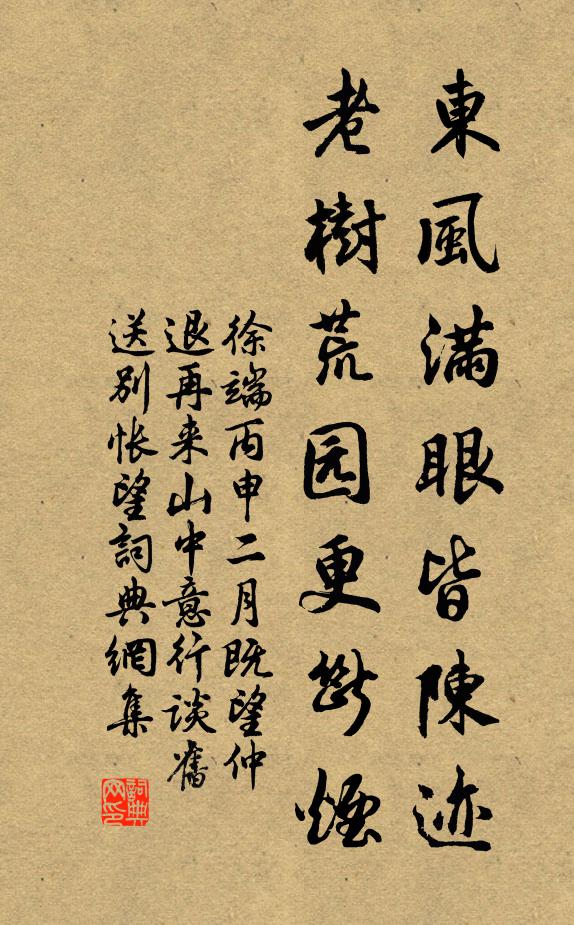 東風满眼皆陳迹
老樹荒园更斷煙
徐端丙申二月既望仲
退再来山中意行谈舊
送别怅望詞典網集
詞典
网印